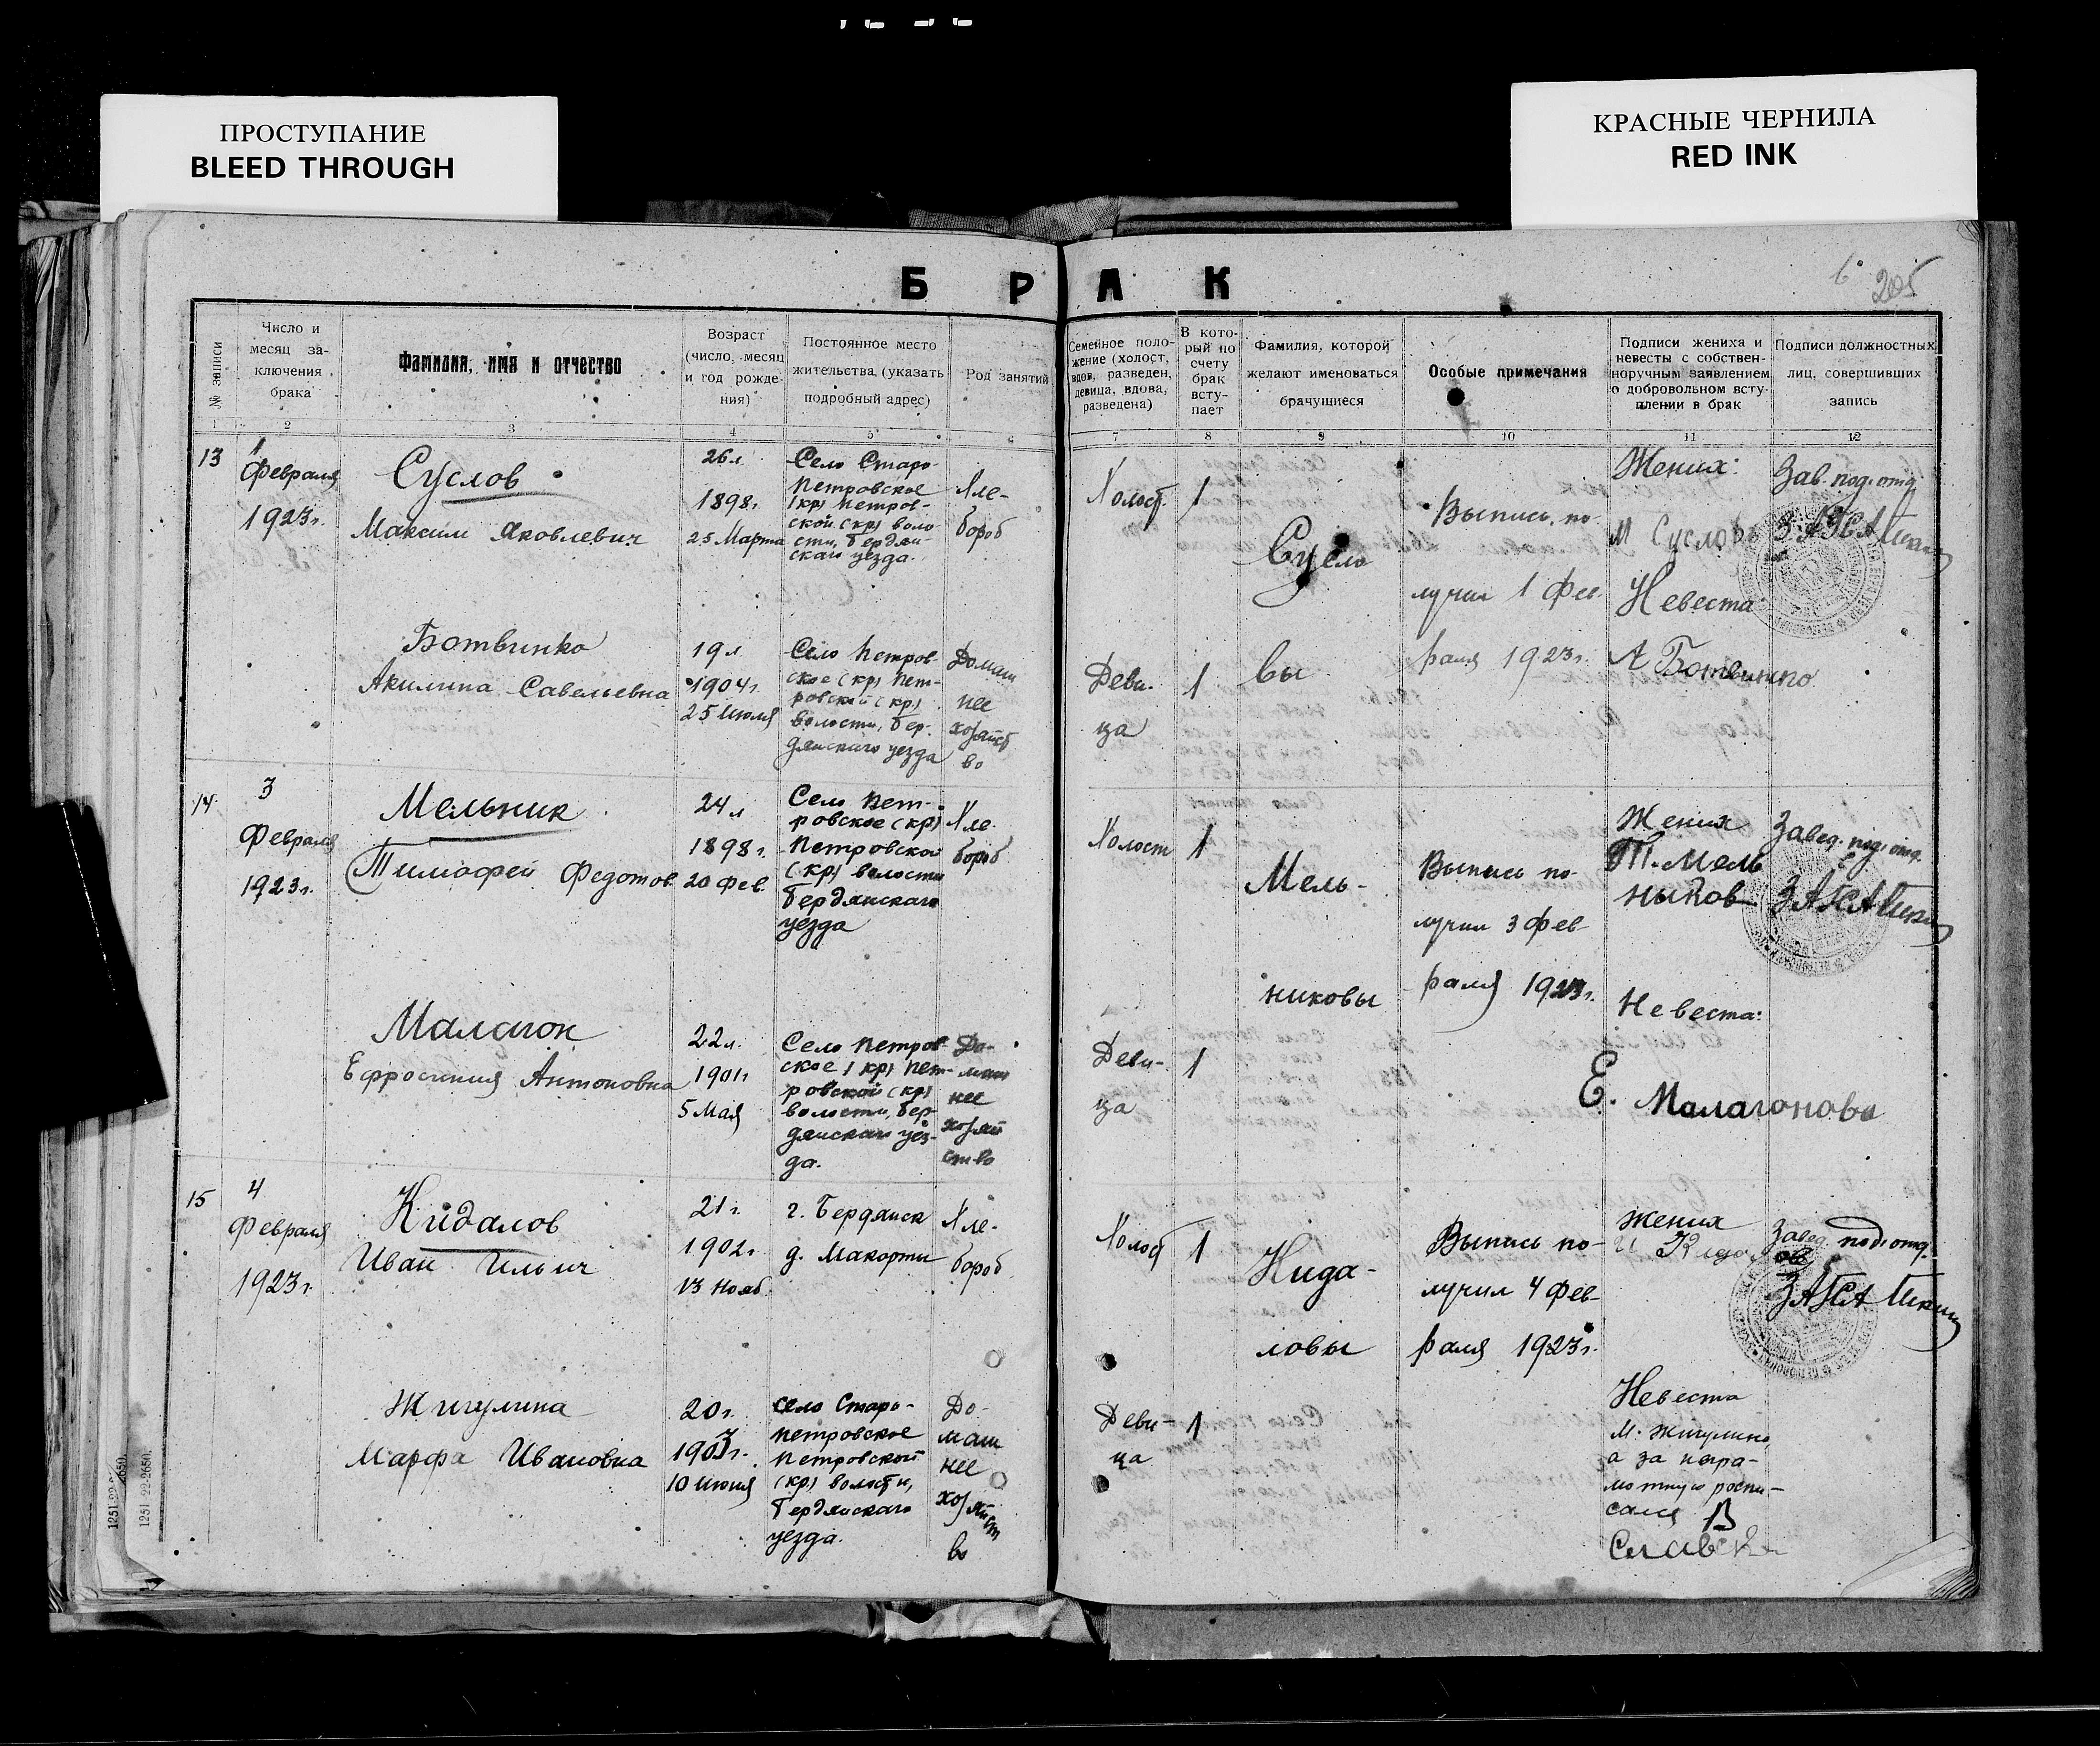 ПРОСТУПАНИЕ
BLEED THROUGH
КРАСНЫЕ ЧЕРНИЛА
RED INK
205
БРАК
№ записи
Число и
месяц за-
ключения
брака
Фамилия, имя и отчество
Возраст
(число, месяц
и год рожде-
ния)
Постоянное место
жительства (указать
подробный адрес)
Род занятий
Семейное поло-
жение (холост,
вдов, разведен,
девица, вдова,
разведена)
В кото-
рый по
счету
брак
всту-
пает
Фамилия, которой
желают именоваться
брачущиеся
Особые примечания
Подписи жениха и
невесты с собствен-
норучным заявлением
о добровольном всту-
плении в брак
Подписи должностных
лиц, совершивших
запись
1 2 3 4 5 6 7 8 9 10 11 12
13
1
Февраля
1923 г.
Суслов
Максим Яковлевич
26 л
1898 г.
25 Марта
Село Старо-
Петровское
(кр) Петров-
ской (кр) воло
сти, Бердян-
скаго уезда.
Хле-
бороб
Холост.
1
Сусло
вы
Выпись по-
лучил 1 Фев
раля 1923 г.
Жених:
М Суслов
Невеста
А Ботвинко
Зав. под. отд.
ЗАГСА
Ботвинко
Акилина Савельевна
19 л
1904 г.
25 Июля
Село Петров-
ское (кр) Пет-
ровской (кр)
волости, Бер-
дянскаго уезда
Домаш
нее
хозяйст
во
Деви-
ца
1
14
3
Февраля
1923 г.
Мельник
Тимофей Федотов.
24 л
1898 г.
20 Фев.
Село Пет-
ровское (кр)
Петровской
(кр) волости
Бердянскаго
уезда
Хле-
бороб
Холост
1
Мель-
никовы
Выпись по-
лучил 3 Фев-
раля 1923 г.
Жених
Т. Мель
ныков
Невеста:
Е. Малагонова
Завед. под. отд.
ЗАГСА
Малагон
Ефросиния Антоновна
22 л.
1901 г
5 Мая
Село Петров-
ское (кр) Пет-
ровской (кр)
волости, Бер-
дянскаго уез-
да.
До-
маш
нее
хозяй
ство
Деви-
ца
1
15
4
Февраля
1923 г.
Кидалов
Иван Ильич
21 г.
1902 г
13 Нояб.
г. Бердянск
д. Макорты
Хле-
бороб
Холост
1
Кида-
ловы
Выпись по-
лучил 4 Фев-
раля 1923 г.
Жених
И Кидал
ов
Завед. под. отд.
ЗАГСА
Жигулина
Марфа Ивановна
20 г.
1903 г.
10 Июня
Село Старо-
Петровское
Петровской
(кр) волости,
Бердянскаго
уезда.
До-
маш
нее
хозяйст
во
Деви-
ца
1
Невеста
М. Жигулина,
а за негра-
мотную распи-
сался В
1251 22-2650.
1251 22-2650.